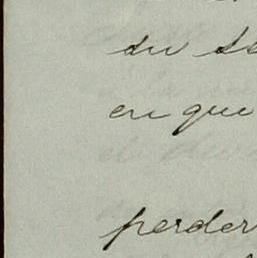 su
en que
perder